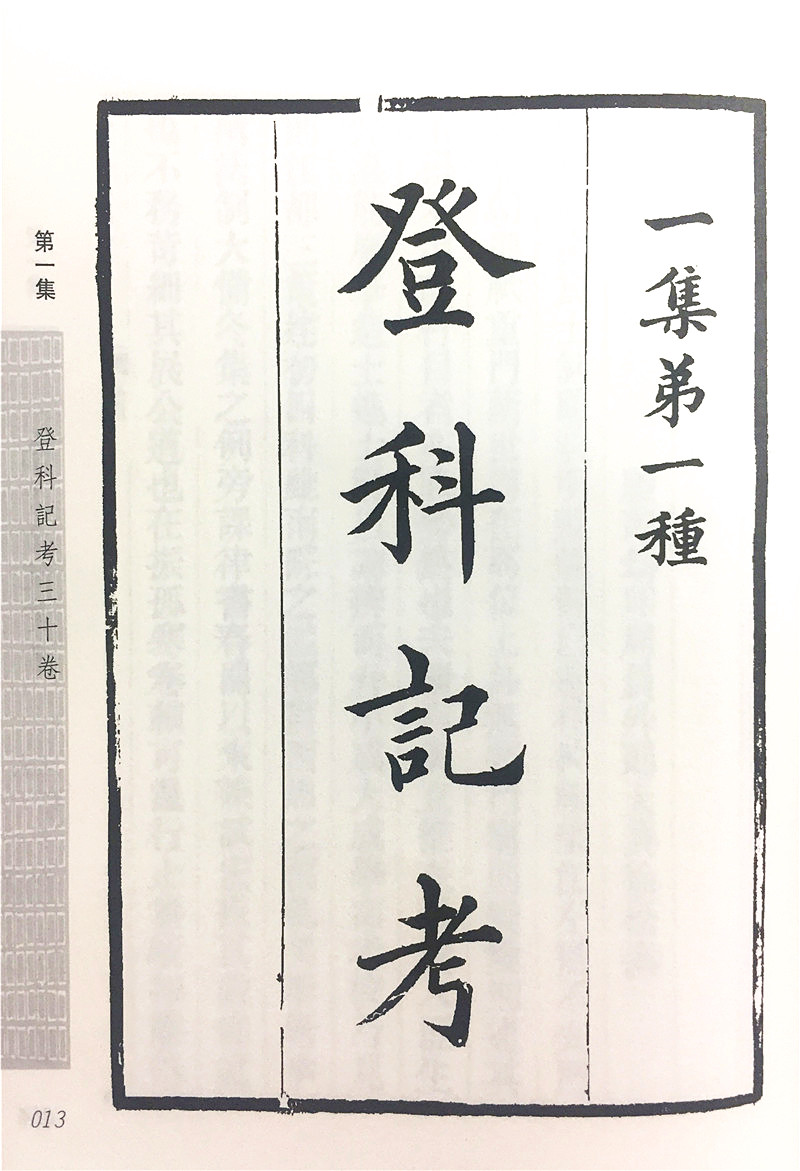 一集弟一種
登科記考
第一集
登科記考三十卷
013